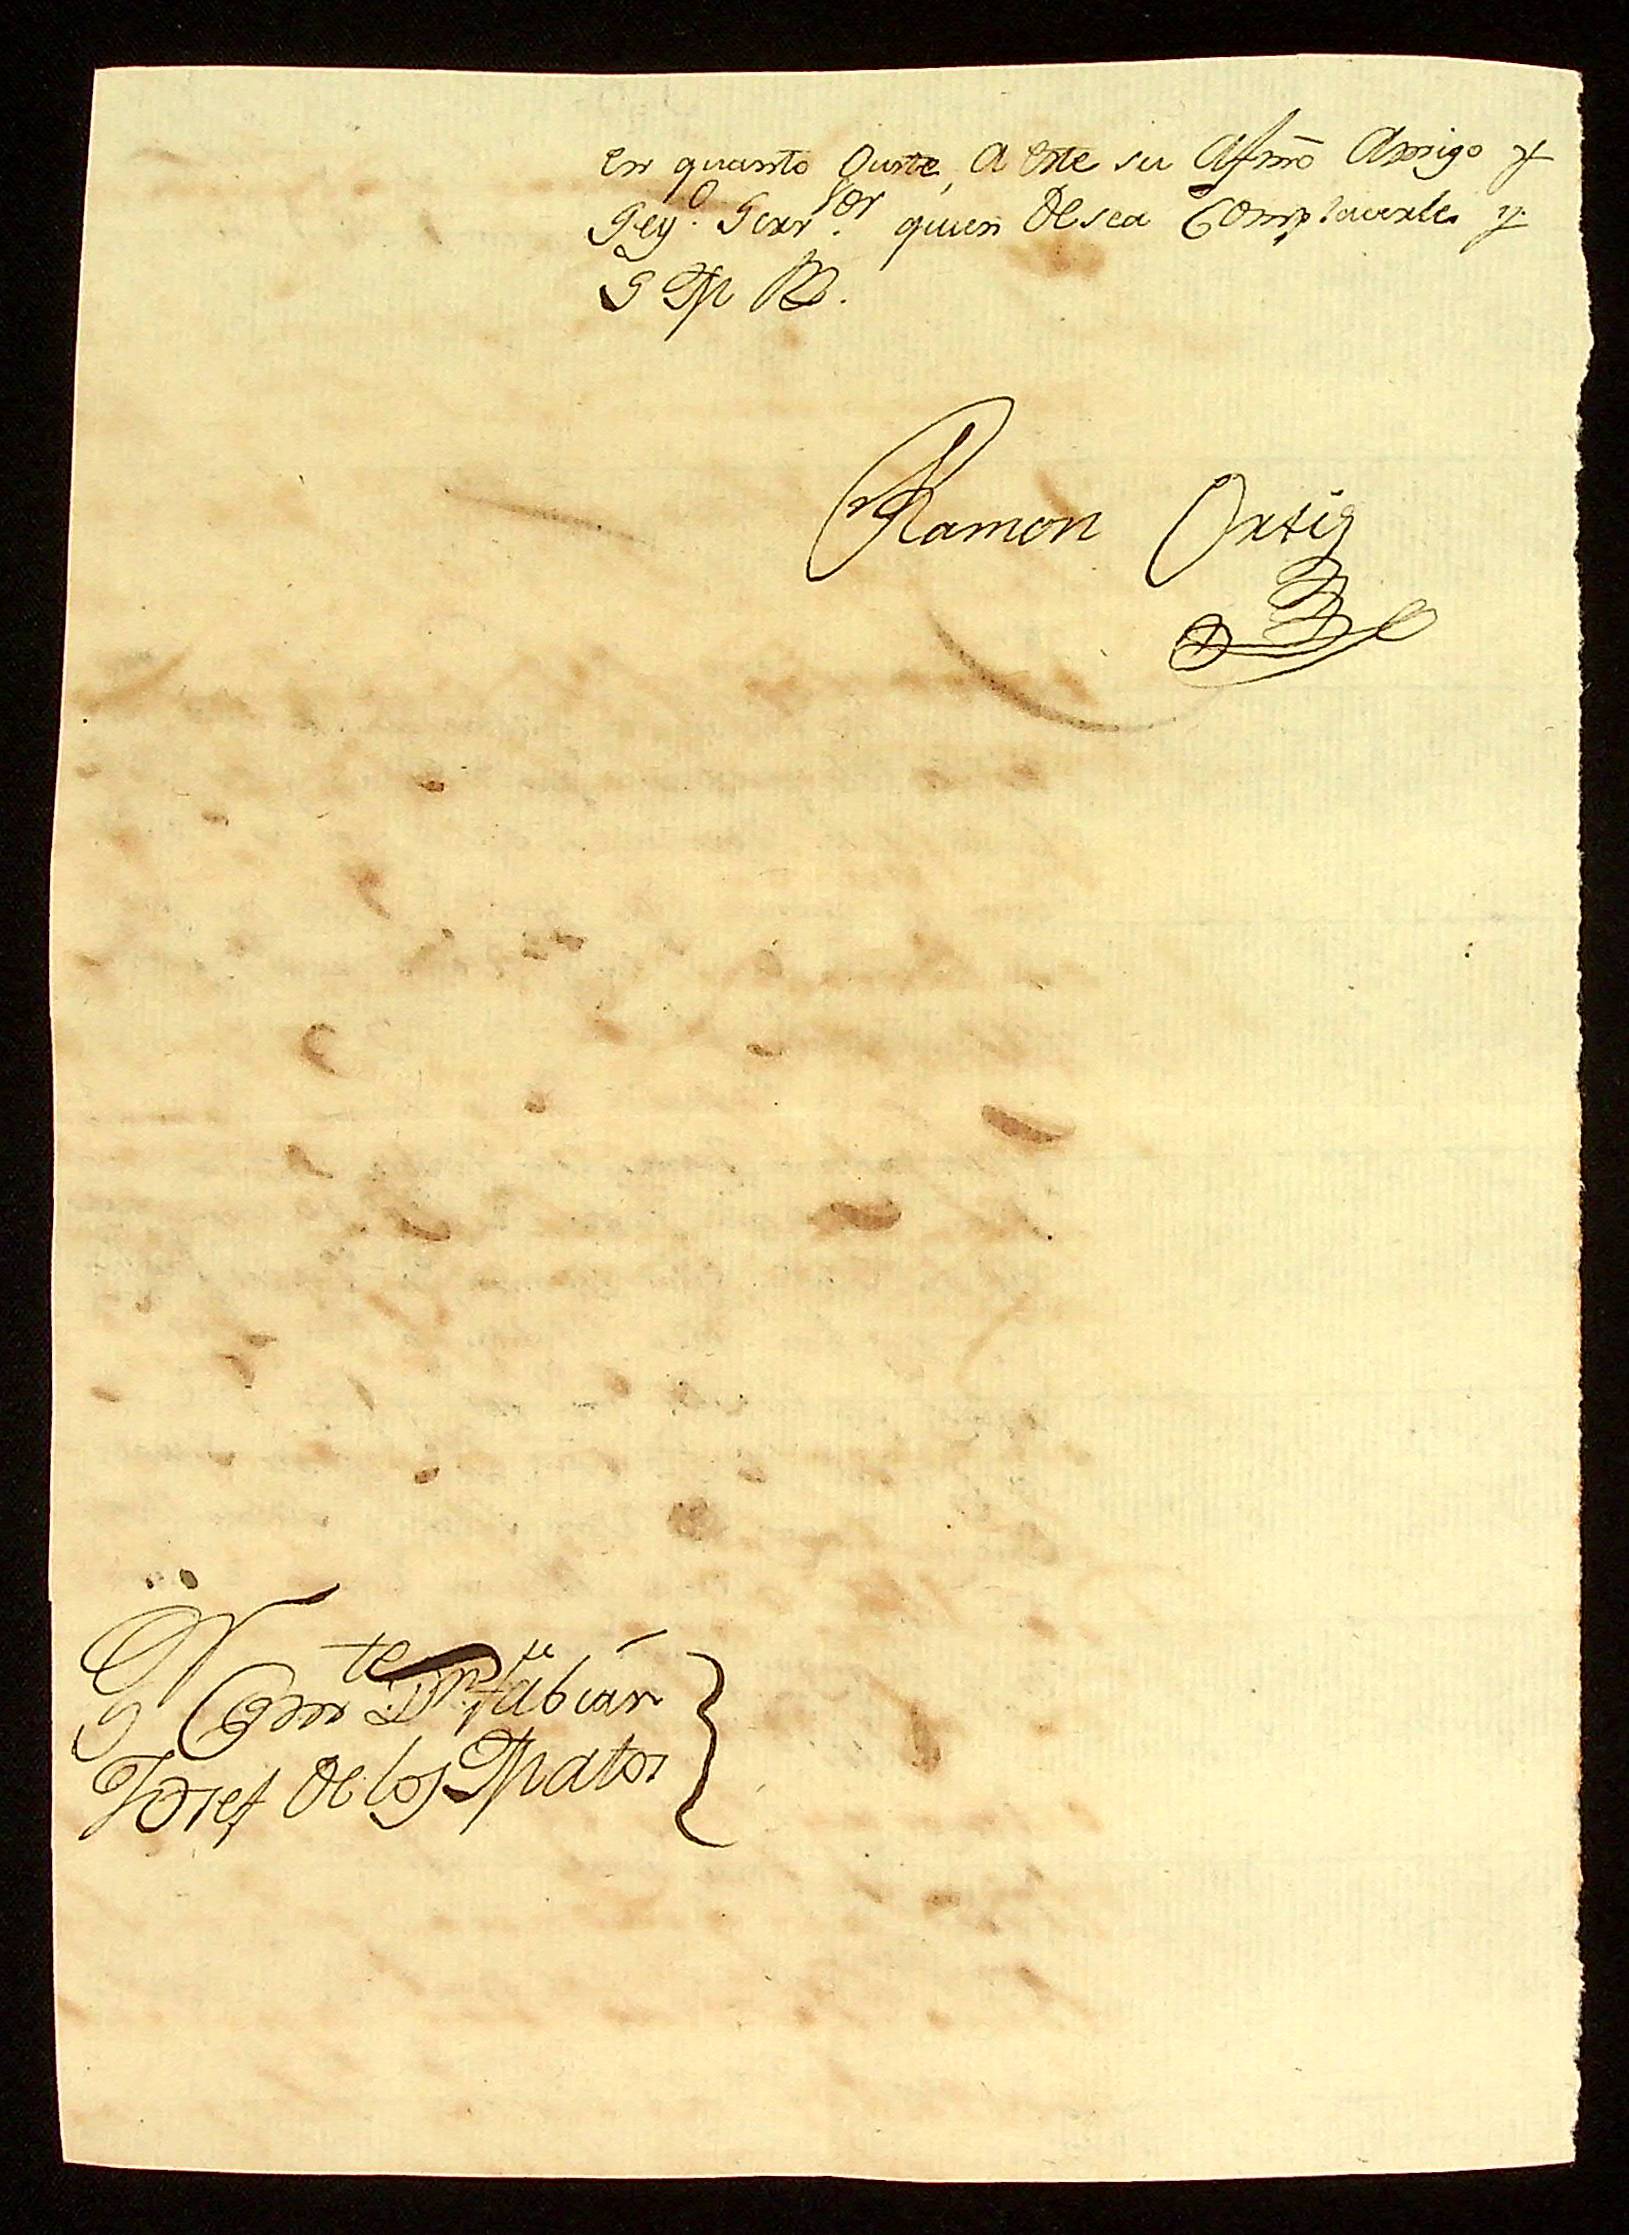 en quanto Guste, a este su Afmo Amigo y
Seg.o Ser.vor quien desea Complacerle y
S M B.
Ramon Ortiz
Sr Com.te Dn Fabian
Josef de los Matos